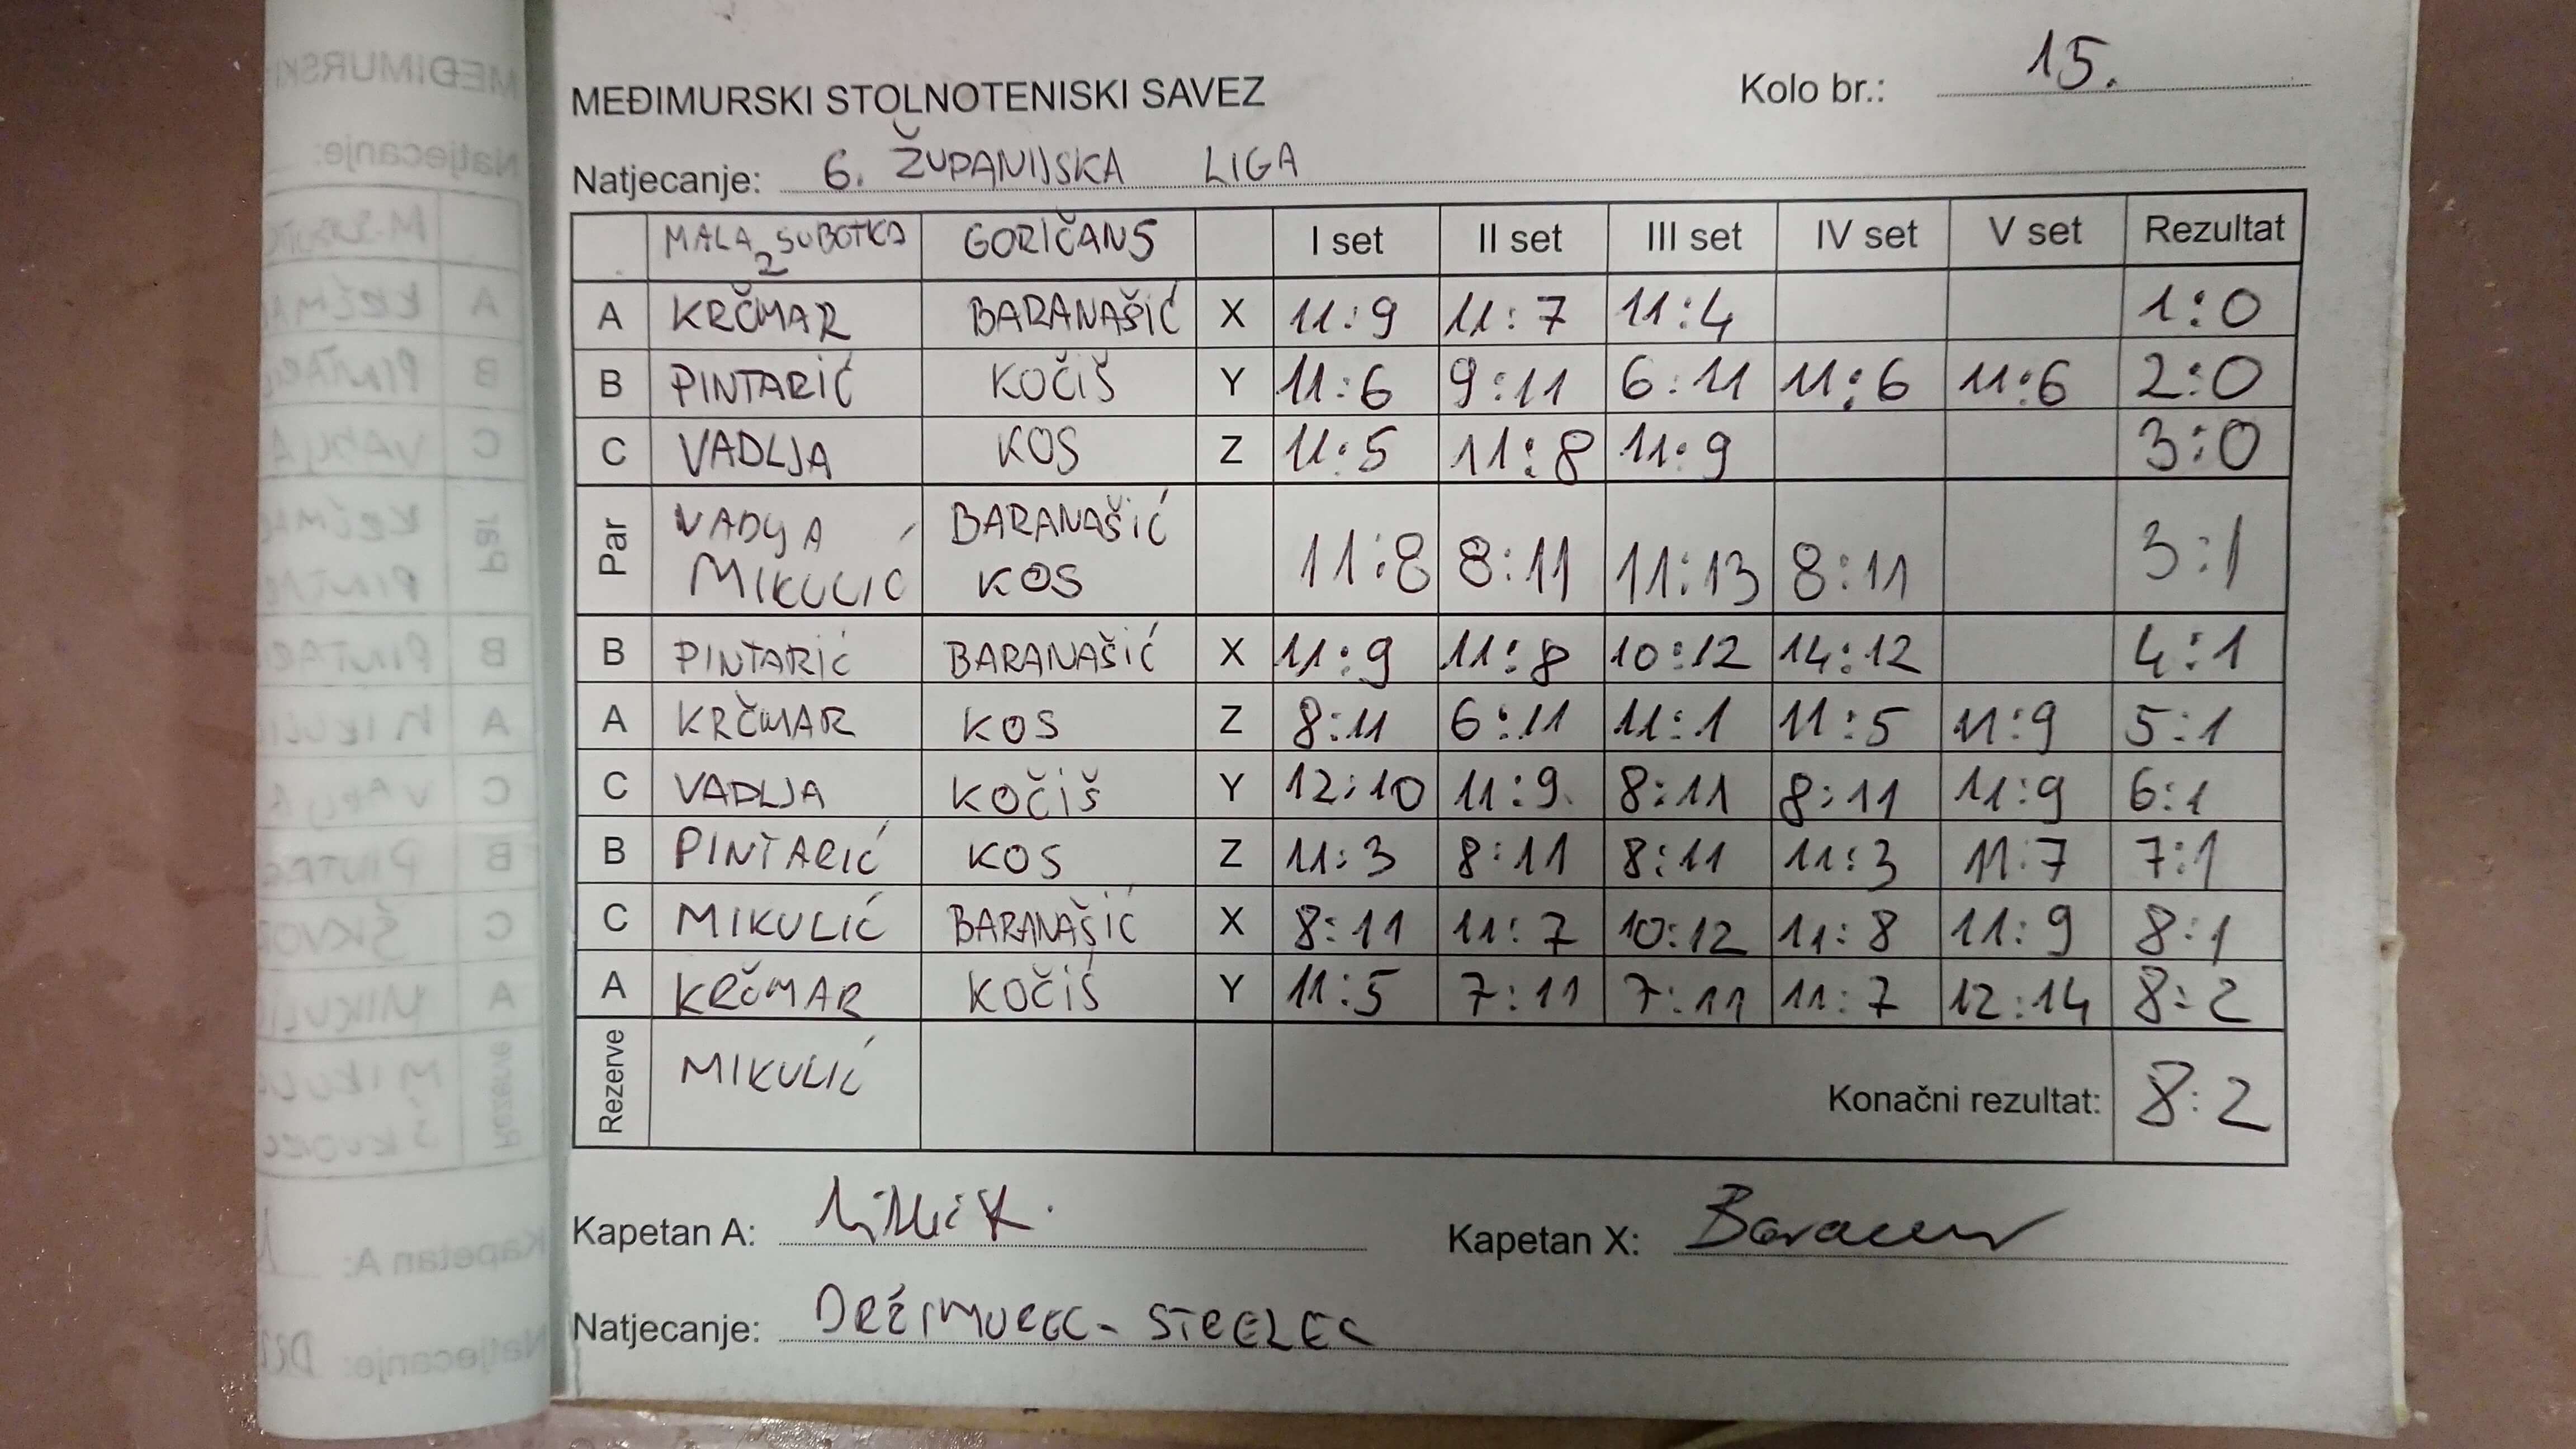 MEĐIMURSKI STOLNOTENISKI SAVEZ
Kolo br.: 15.
Natjecanje: 6. ŽUPANIJSKA LIGA
MALA SUBOTICA 2 GORIČAN 5 I set II set III set IV set V set Rezultat
A KRČMAR BARANAŠIĆ X 11:9 11:7 11:4 1:0
B PINTARIĆ KOČIŠ Y 11:6 9:11 6:11 11:6 11:6 2:0
C VADLJA KOS Z 11:5 11:8 11:9 3:0
Par VADLJA MIKULIĆ BARANAŠIĆ KOS 11:8 8:11 11:13 8:11 3:1
B PINTARIĆ BARANAŠIĆ X 11:9 11:8 10:12 14:12 4:1
A KRČMAR KOS Z 8:11 6:11 11:1 11:5 11:9 5:1
C VADLJA KOČIŠ Y 12:10 11:9 8:11 8:11 11:9 6:1
B PINTARIĆ KOS Z 11:3 8:11 8:11 11:3 11:7 7:1
C MIKULIĆ BARANAŠIĆ X 8:11 11:7 10:12 11:8 11:9 8:1
A KRČMAR KOČIŠ Y 11:5 7:11 7:11 11:7 12:14 8:2
Rezerve MIKULIĆ Konačni rezultat: 8:2
Kapetan A:
Kapetan X:
Natjecanje: DRŽIMUREC - STRELEC